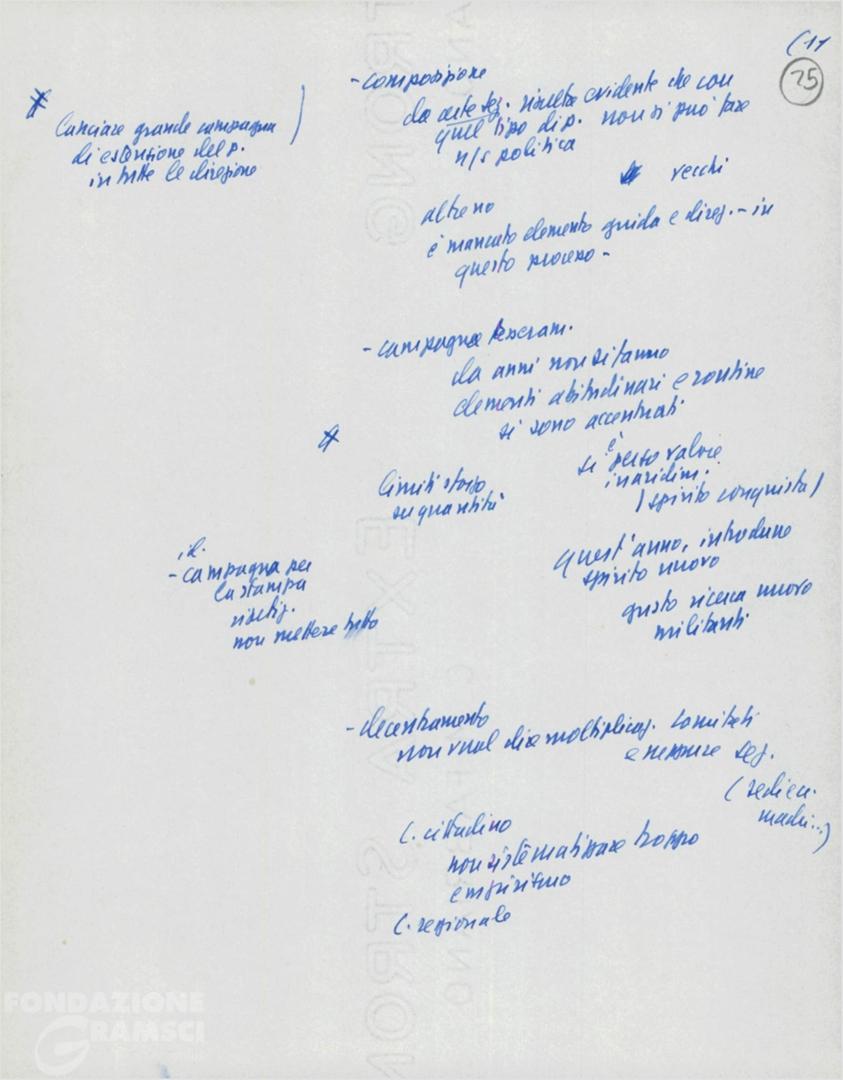 (11
25
- composizione
da certe sez. risulta evidente che con
quel tipo di p. non si può fare
n/s politica
vecchi
altre no
è mancato elemento guida e direz. - in
questo processo -
* lanciare grande campagna )
di estensione del p.
in tutte le direzione
- campagna tesseram.
da anni non si fanno
elementi abitudinari e routine
si sono accentuati
*
si è perso valore
inaridim.
(spirito conquista)
limiti stesso
su quantità
quest'anno, introdurre
spirito nuovo
gusto ricerca nuovo
militanti
id.
- campagna per
la stampa
non mettere tutto
- decentramento
non vuol dire moltiplicaz. Comitati
e neppure sez.
C. cittadino
non sistematizzare troppo
empirismo
C. regionale
FONDAZIONE
GRAMSCI
EXTRA STRONG